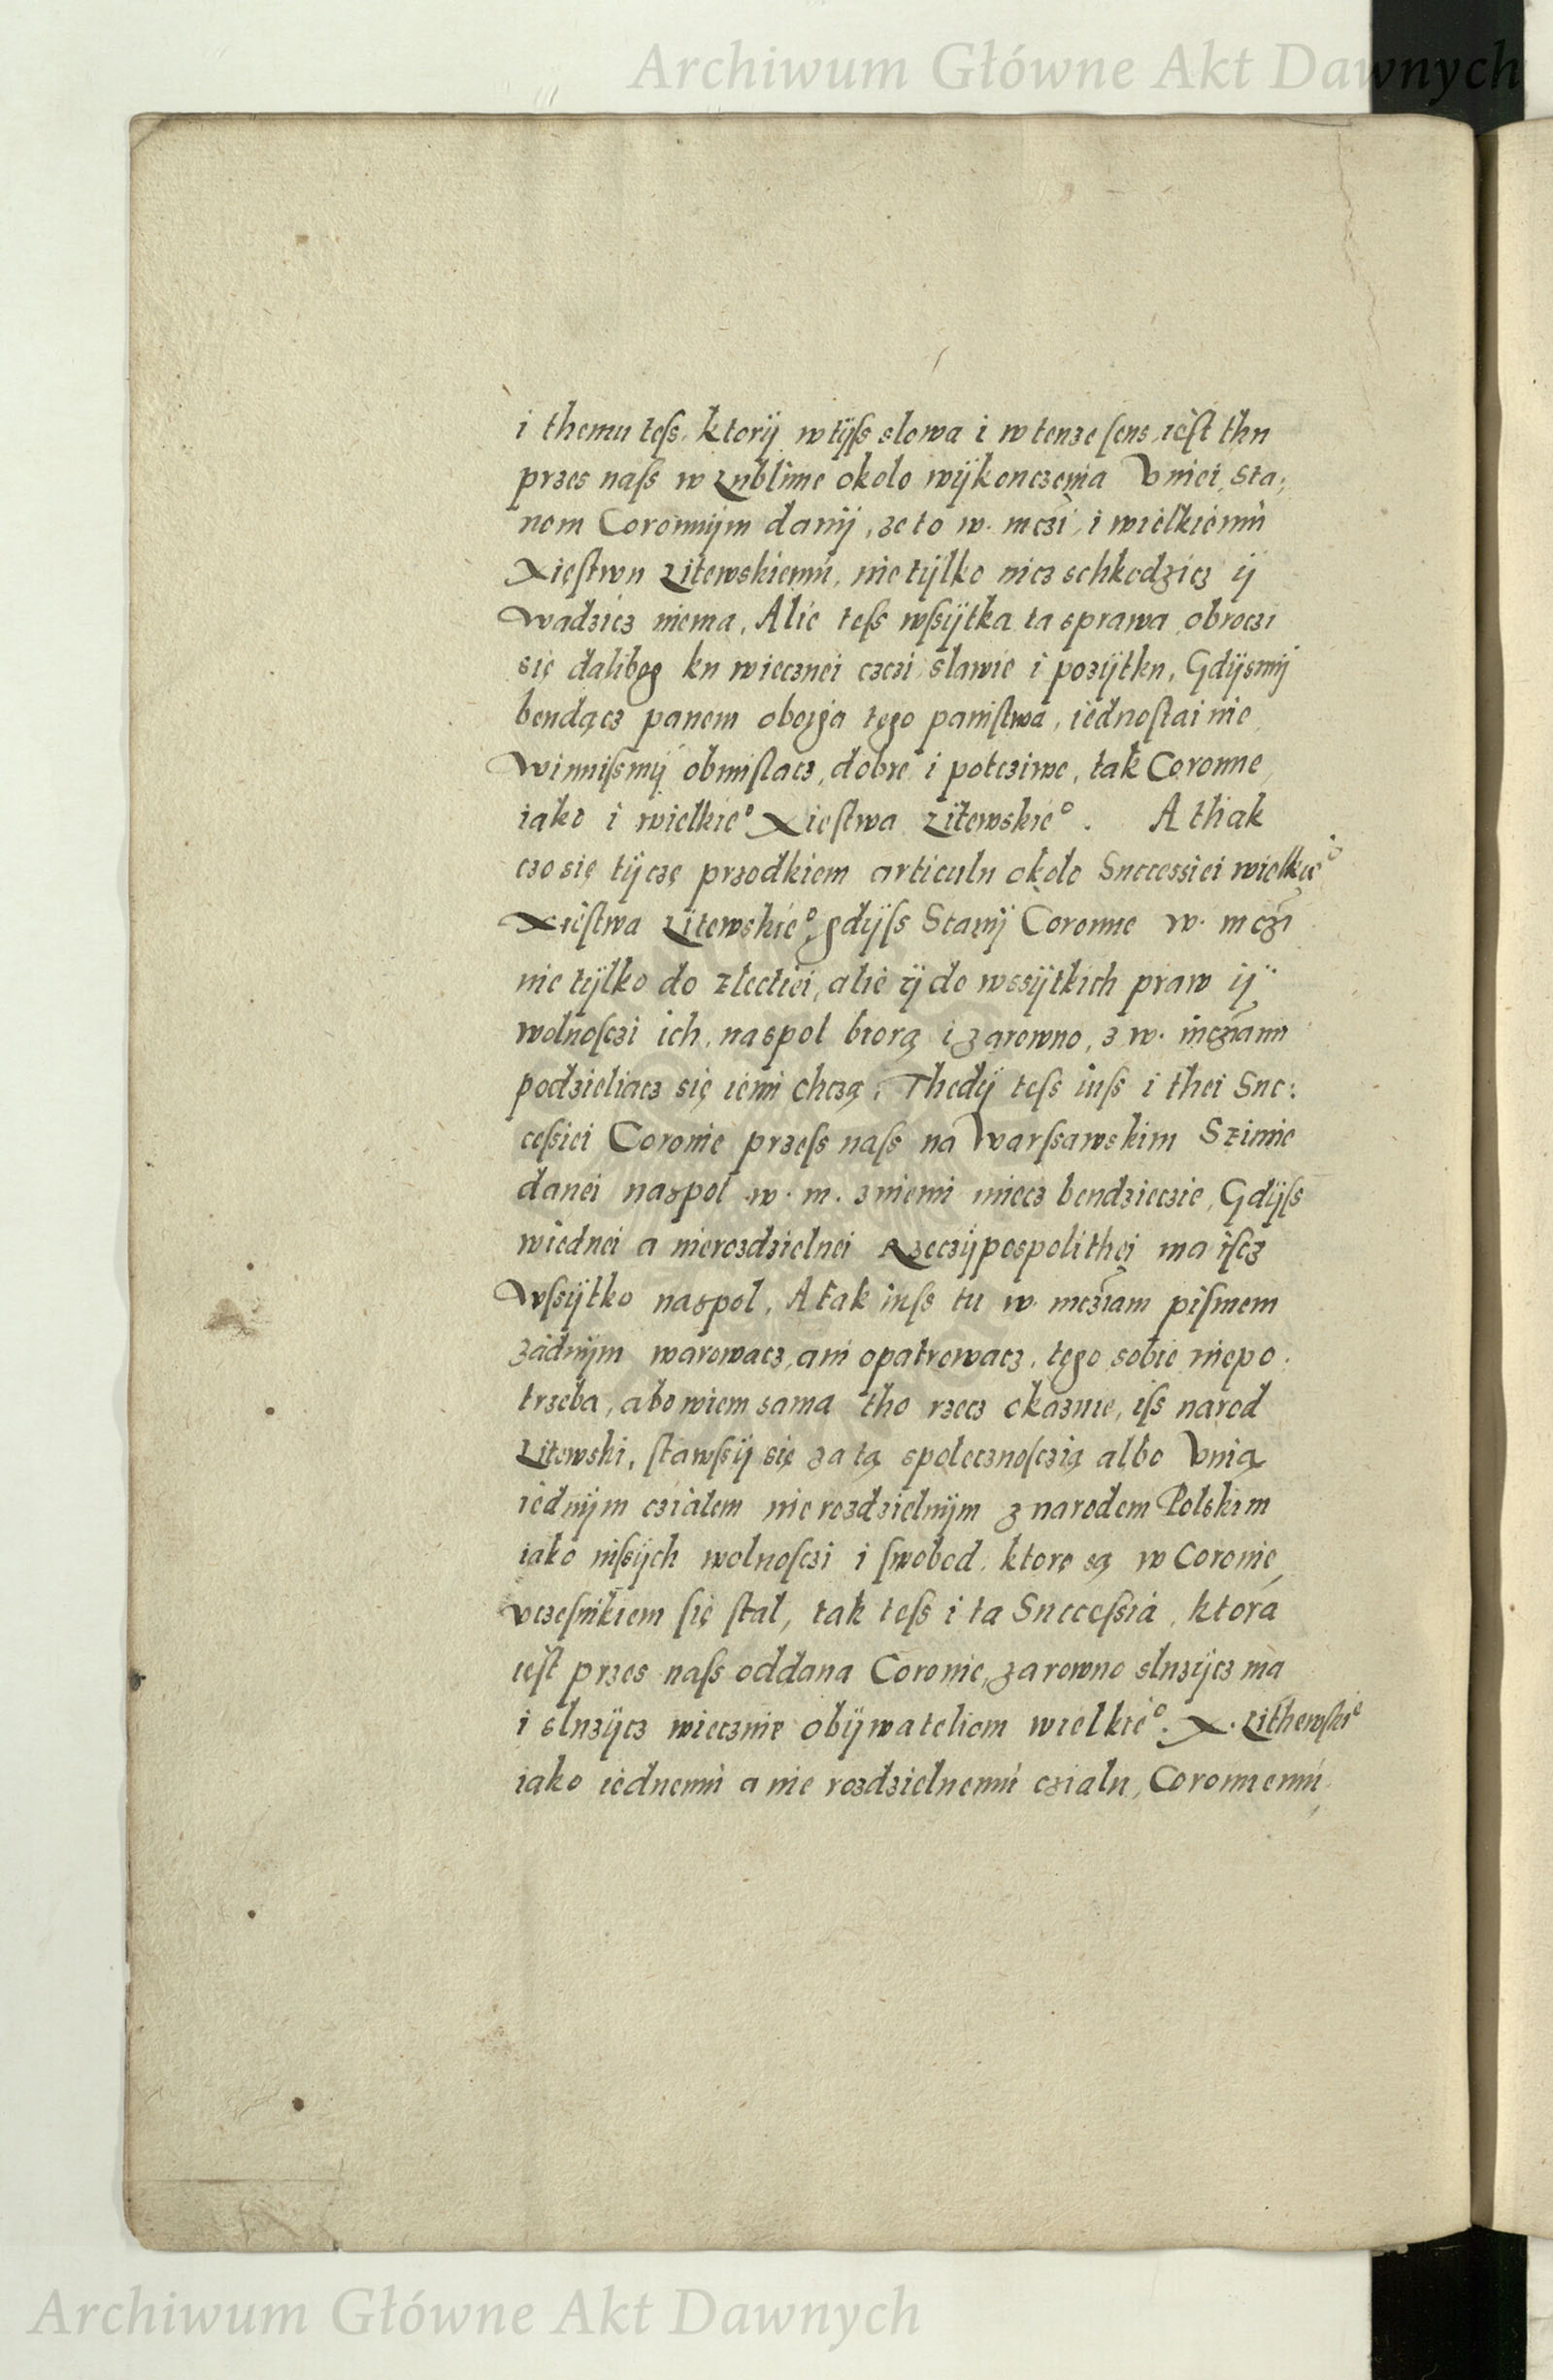 Archiwum Główne Akt Dawnych
i themu tess, ktorÿ wtÿss slowa i w tenze sens, iest thu
przes nass w Lublinie około wÿkonczenia Vniei, Sta:
nom Coronnÿm danÿ, ze to w. mczi, i wielkiemu
Xięstwu Litewskiemu, nie tÿlko nicz schkodzicz ÿ
wadzicz niema, Alie tess wssÿtka ta sprawa obroczi
się dalibog ku wiecznei czczi slawie i pozÿtku, Gdÿsmÿ
bendącz panem oboÿga tego panistwa, iednostainie
winnismÿ obmislacz, dobre i potcziwe, tak Coronne
iako i wielkie° Xiestwa Litewskie°. A thak
czo się tÿczę przodkiem articulu około Successiei wielkie°
Xiestwa Litewskie°, gdÿss Stanÿ Coronne w. mczi
nie tÿlko do zlectiei, alie ÿ do wssÿtkich praw ÿ
wolnosczi ich, naspol biorą i zarowno, z w. mcziami
podzieliacz się iemi chczą, Thedÿ tess iuss i thei Suc:
cessiei Coronie przess nass na Warssawskim Szimie
danei naspol w. m. zniemi miecz bendziecie, Gdÿss
wiednei a nierozdzielnei Rzeczÿpospolithei ma iscz
wssÿtko naspol, A tak iuss tu w. mcziam pismem
żadnÿm warowacz, ani opatrowacz, tego sobie niepo:
trzeba, abowiem sama tho rzecz okaznie, iss narod
Litewski, stawssÿ się za tą spolecznosczią albo Vnią
iednÿm czialem nierozdzielnÿm z narodem Polskim
iako inssÿch wolnosczi i swobod, ktorę są w Coronie,
vczesnikiem się stal, tak tess i ta Successia, ktorá
iest przes nass oddana Coronie, zarowno sluzÿcz ma
i sluzÿcz wiecznie obÿwateliom wielkie°. X. Lithewskie°
iako iednemu a nie rozdzielnemu czialu, Coronnemu
Archiwum Główne Akt Dawnych